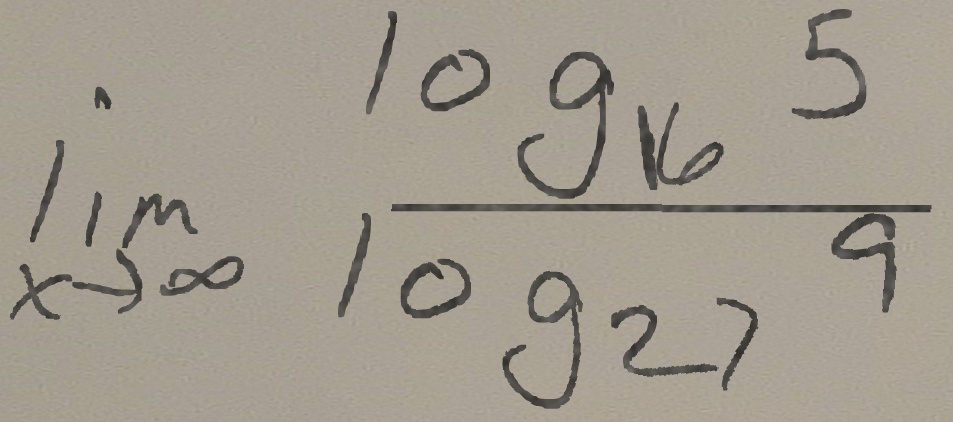 lim x→∞ log₁₆ 5
log₂₇ 9